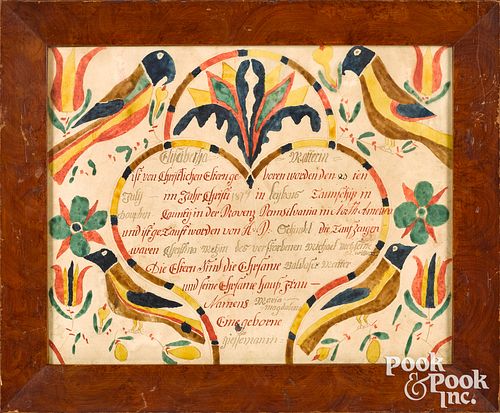 Elisabetha Matterin
ist von Christlichen Eltern ge boren worden den 23 ten
July im Jahr Christi 1807 in leykens Taunschip in
Dauphin Caunty in der Provenz Pensilvania in Nord America
und ist ge Tauft worden von A.v.D. Schnekl die Tauf Zeugen
waren Christina des verstorbenen Michael
Die Eltern Sind die Ehrsame Baldaser Matter
und seine Ehrsame Haus Frau
Namens Maria Magdalena
Eine geborne
POOK
& POOK
Inc.